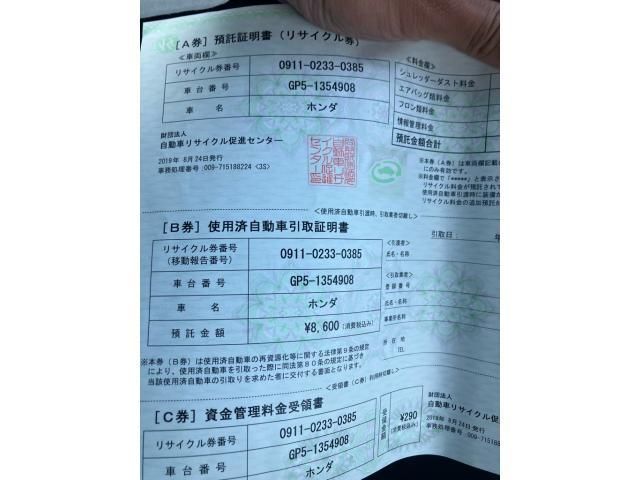 [A券] 預託証明書 (リサイクル券)
≪車両欄≫
リサイクル券番号 0911-0233-0385
車台番号 GP5-1354908
車名 ホンダ
≪料金欄≫
シュレッダーダスト料金
エアバッグ類料金
フロン類料金
情報管理料金
預託金額合計
財団法人
自動車リサイクル促進センター
2019年 8月24日発行
事務処理番号:009-715188224 <3S>
※本券(A券)は車両欄記載
にのみ有効です。
※料金欄で「*****」と表示さ
リサイクル料金が預託されて
使用済自動車引渡時に装備が
リサイクル料金の追加預託が
<使用済自動車引渡時、引取業者切離し>
[B券] 使用済自動車引取証明書
リサイクル券番号
(移動報告番号) 0911-0233-0385
車台番号 GP5-1354908
車名 ホンダ
預託金額 ¥8,600 (消費税込み)
引取日: 年
<引渡者>
氏名・名称
<引取業者>
登録番号
氏名・名称
事業所名
所在地
TEL
※本券(B券)は使用済自動車の再資源化等に関する法律第9条の規定
により、使用済自動車を引取った際に同法第80条の規定に基づき
当該使用済自動車の引取りを求めた者に交付する書面となります。
<受領書(C券)利用時切離し>
[C券] 資金管理料金受領書
リサイクル券番号 0911-0233-0385
車台番号 GP5-1354908
車名 ホンダ
受領金額 ¥290
(消費税込み)
財団法人
自動車リサイクル促
2019年 8月24日発行
事務処理番号:009-71518